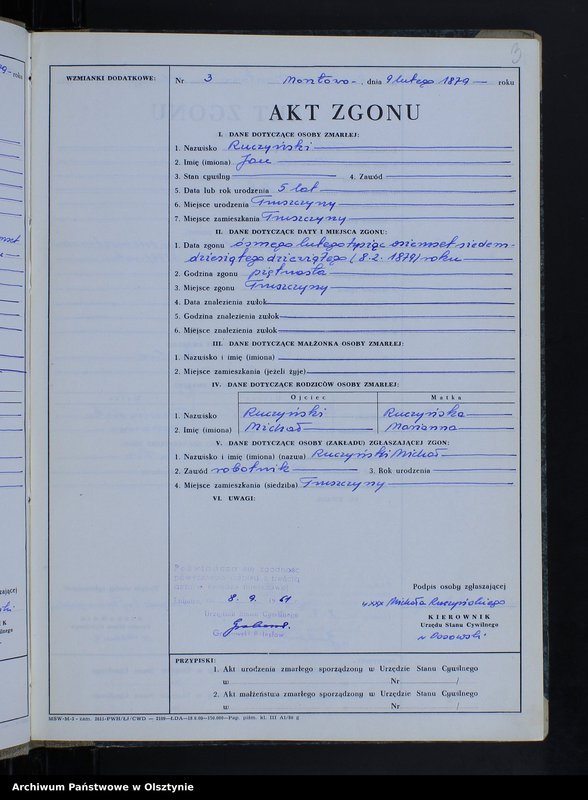 WZMIANKI DODATKOWE:
Nr 3 Montowo, dnia 9 lutego 1879 roku
AKT ZGONU
I. DANE DOTYCZĄCE OSOBY ZMARŁEJ:
1. Nazwisko Ruczyński
2. Imię (imiona) Jan
3. Stan cywilny 4. Zawód
5. Data lub rok urodzenia 5 lat
6. Miejsce urodzenia Truszczyny
7. Miejsce zamieszkania Truszczyny
II. DANE DOTYCZĄCE DATY I MIEJSCA ZGONU:
1. Data zgonu ósmego lutego tysiąc osiemset siedem-
dziesiątego dziewiątego (8.2.1879) roku
2. Godzina zgonu piętnasta
3. Miejsce zgonu Truszczyny
4. Data znalezienia zwłok
5. Godzina znalezienia zwłok
6. Miejsce znalezienia zwłok
III. DANE DOTYCZĄCE MAŁŻONKA OSOBY ZMARŁEJ:
1. Nazwisko i imię (imiona)
2. Miejsce zamieszkania (jeżeli żyje)
IV. DANE DOTYCZĄCE RODZICÓW OSOBY ZMARŁEJ:
Ojciec Matka
1. Nazwisko Ruczyński Ruczyńska
2. Imię (imiona) Michał Marianna
V. DANE DOTYCZĄCE OSOBY (ZAKŁADU) ZGŁASZAJĄCEJ ZGON:
1. Nazwisko i imię (imiona) (nazwa) Ruczyński Michał
2. Zawód robotnik 3. Rok urodzenia
4. Miejsce zamieszkania (siedziba) Truszczyny
VI. UWAGI:
Poświadcza się zgodność
8. 9. 1961
Urzędnik Stanu Cywilnego
Podpis osoby zgłaszającej
xxx Michała Ruczyńskiego
KIEROWNIK
Urzędu Stanu Cywilnego
PRZYPISKI:
1. Akt urodzenia zmarłego sporządzony w Urzędzie Stanu Cywilnego
w Nr /
2. Akt małżeństwa zmarłego sporządzony w Urzędzie Stanu Cywilnego
w Nr /
Archiwum Państwowe w Olsztynie